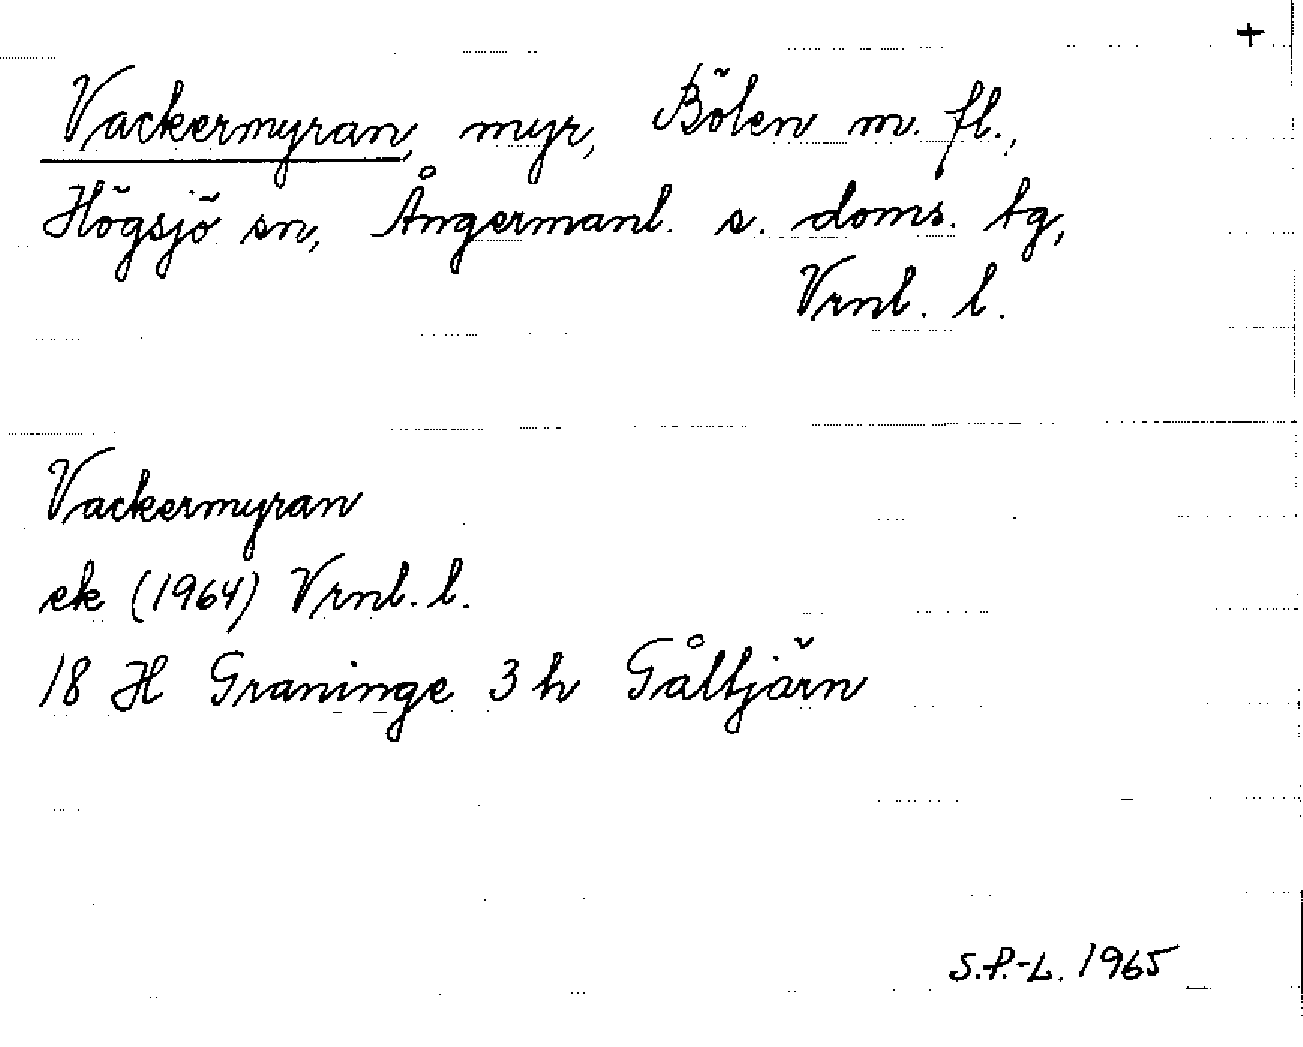 +
Vackermyran, myr, Bölen m. fl.,
Högsjö sn, Ångermanl. s. doms. tg,
Vrnl. l.
Vackermyran
ek (1964) Vrnl. l.
18 H Graninge 3 h Gåltjärn
S.P.-L. 1965